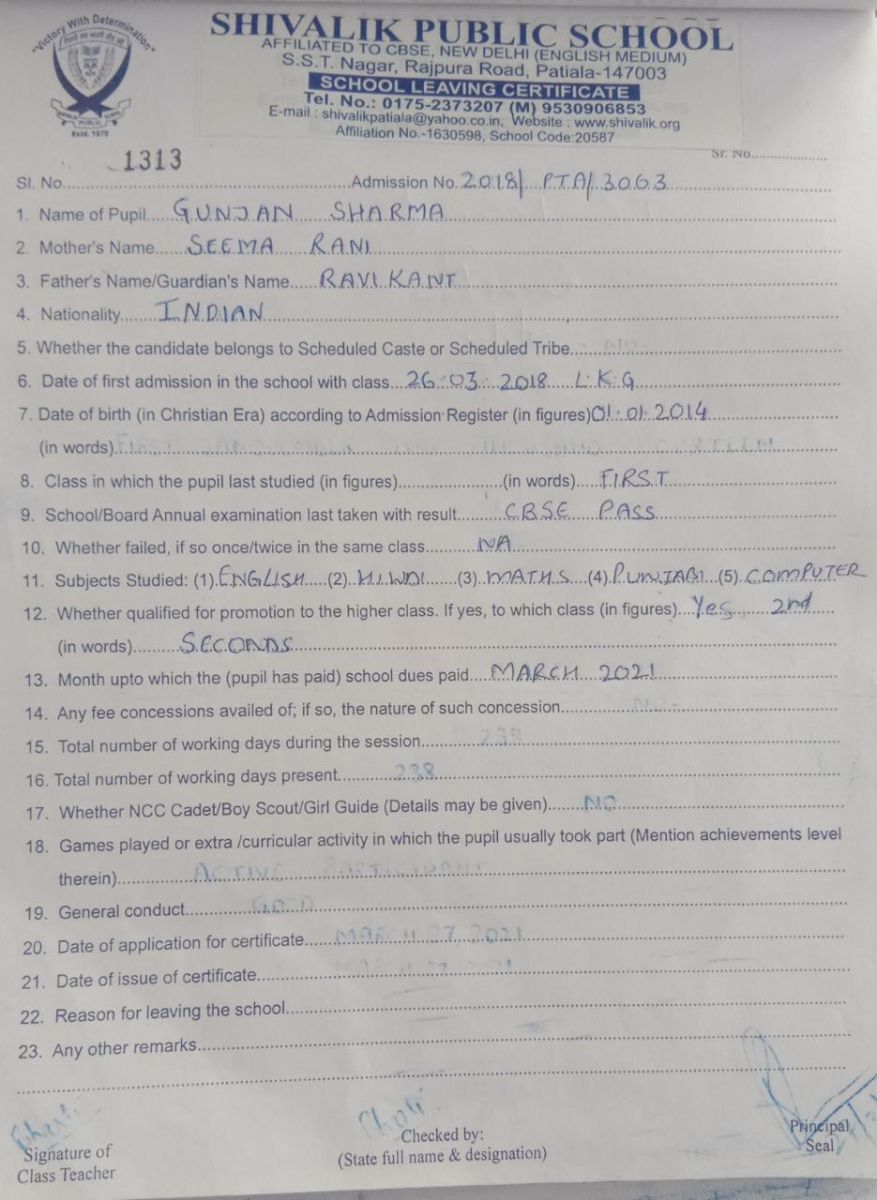 "Victory With Determination"
SHIVALIK PUBLIC SCHOOL
AFFILIATED TO CBSE, NEW DELHI (ENGLISH MEDIUM)
S.S.T. Nagar, Rajpura Road, Patiala-147003
SCHOOL LEAVING CERTIFICATE
Tel. No.: 0175-2373207 (M) 9530906853
E-mail : shivalikpatiala@yahoo.co.in, Website : www.shivalik.org
Affiliation No.-1630598, School Code:20587
SHIVALIK PUBLIC SCHOOL
Estd. 1970
Sr. No.....................
Sl. No. 1313 Admission No. 2018/ PTA/ 3063
1. Name of Pupil GUNJAN SHARMA
2. Mother's Name SEEMA RANI
3. Father's Name/Guardian's Name RAVI KANT
4. Nationality INDIAN
5. Whether the candidate belongs to Scheduled Caste or Scheduled Tribe
6. Date of first admission in the school with class 26.03.2018 L.K.G
7. Date of birth (in Christian Era) according to Admission Register (in figures) 01.01.2014
(in words)
8. Class in which the pupil last studied (in figures) (in words) FIRST
9. School/Board Annual examination last taken with result CBSE PASS
10. Whether failed, if so once/twice in the same class NA
11. Subjects Studied: (1) ENGLISH (2) HINDI (3) MATHS (4) PUNJABI (5) COMPUTER
12. Whether qualified for promotion to the higher class. If yes, to which class (in figures) Yes 2nd
(in words) SECONDS
13. Month upto which the (pupil has paid) school dues paid MARCH 2021
14. Any fee concessions availed of; if so, the nature of such concession
15. Total number of working days during the session 238
16. Total number of working days present 238
17. Whether NCC Cadet/Boy Scout/Girl Guide (Details may be given) NO
18. Games played or extra /curricular activity in which the pupil usually took part (Mention achievements level
therein) ACTIVE PARTICIPANT
19. General conduct GOOD
20. Date of application for certificate MARCH 27, 2021
21. Date of issue of certificate
22. Reason for leaving the school
23. Any other remarks
Signature of
Class Teacher
Checked by:
(State full name & designation)
Principal
Seal